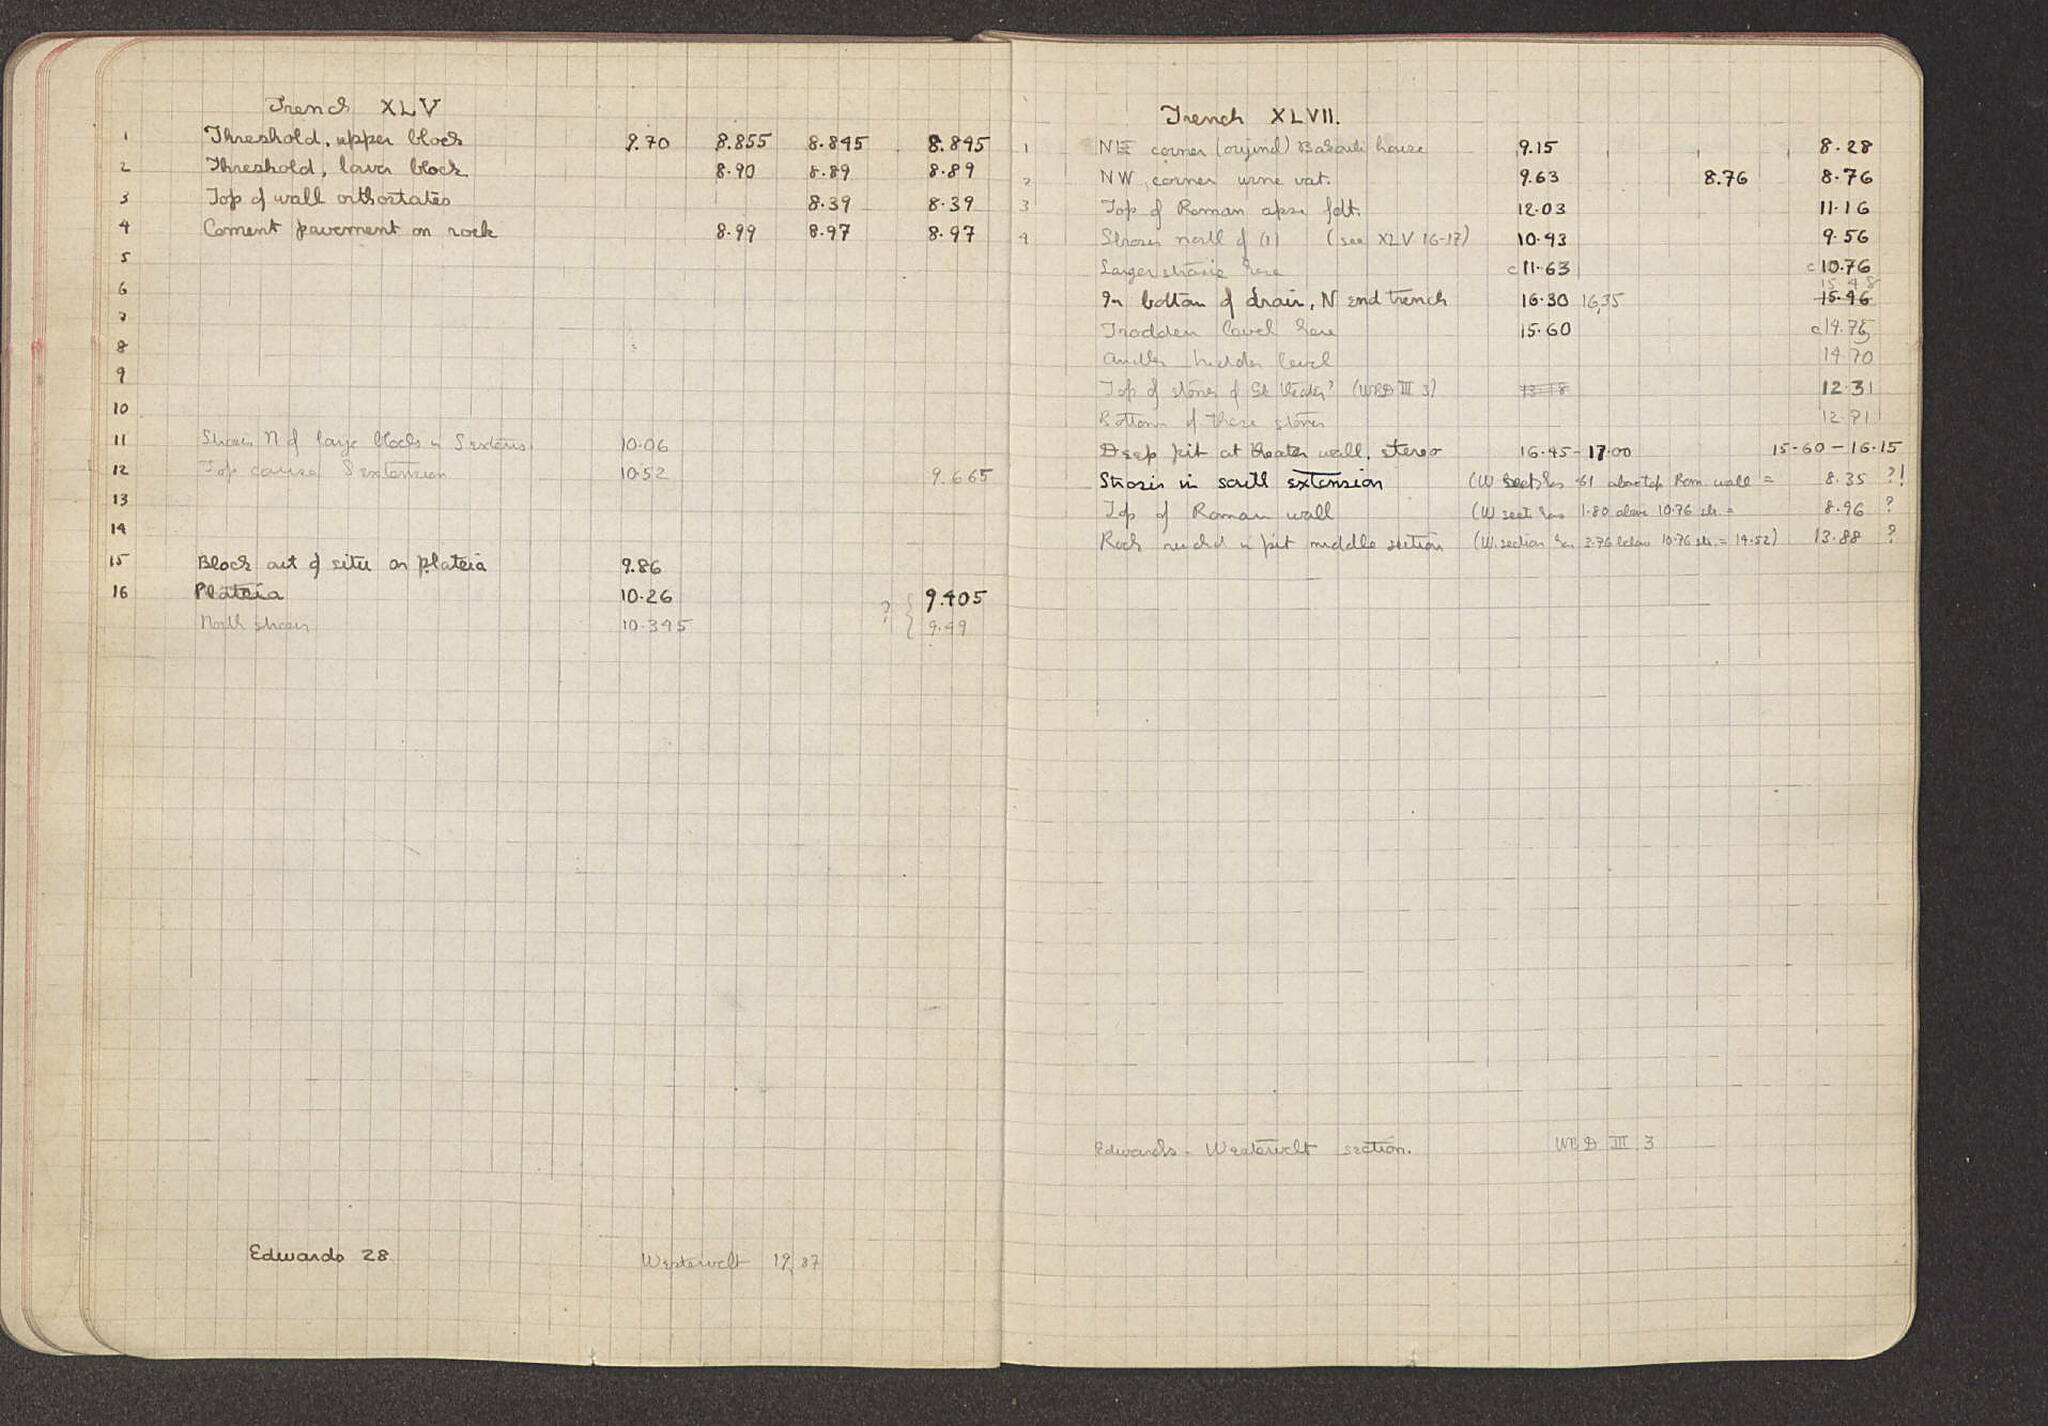 Trench XLV
1 Threshold, upper block 9.70 8.855 8.845 8.845
2 Threshold, lower block 8.90 8.89 8.89
3 Top of wall orthostates 8.39 8.39
4 Cement pavement on rock 8.99 8.97 8.97
5
6
7
8
9
10
11 Strosis N of large blocks in S extens 10.06
12 Top course S extension 10.52 9.665
13
14
15 Block out of situ on plateia 9.86
16 Plateia 10.26 ? { 9.405
North strosis 10.345 9.49
Edwards 28 Westervelt 19, 37
Trench XLVII.
1 NE corner (original) house 9.15 8.28
2 NW corner urne vat. 9.63 8.76 8.76
3 Top of Roman apse fdt. 12.03 11.16
4 Strosis north of (1) (see XLV 16-17) 10.43 9.56
Larger strosis here c 11.63 c 10.76
15.48
In bottom of drain, N end trench 16.30 16.35 15.46
Trodden level here 15.60 c 14.75
Another trodden level 14.70
Top of stones of Gk theater? (WBD III 3) 13.18 12.31
Bottom of these stones 12.91
Deep pit at theater wall, stereo 16.45 - 17.00 15.60 - 16.15
Strosis in south extension (W sect. has .61 above top Rom. wall = 8.35 ?!
Top of Roman wall (W sect. has 1.80 above 10.76 str. = 8.96 ?
Rock reached in pit middle section (W. section has 3.76 below 10.76 str. = 14.52) 13.88 ?
Edwards - Westervelt section. WBD III 3